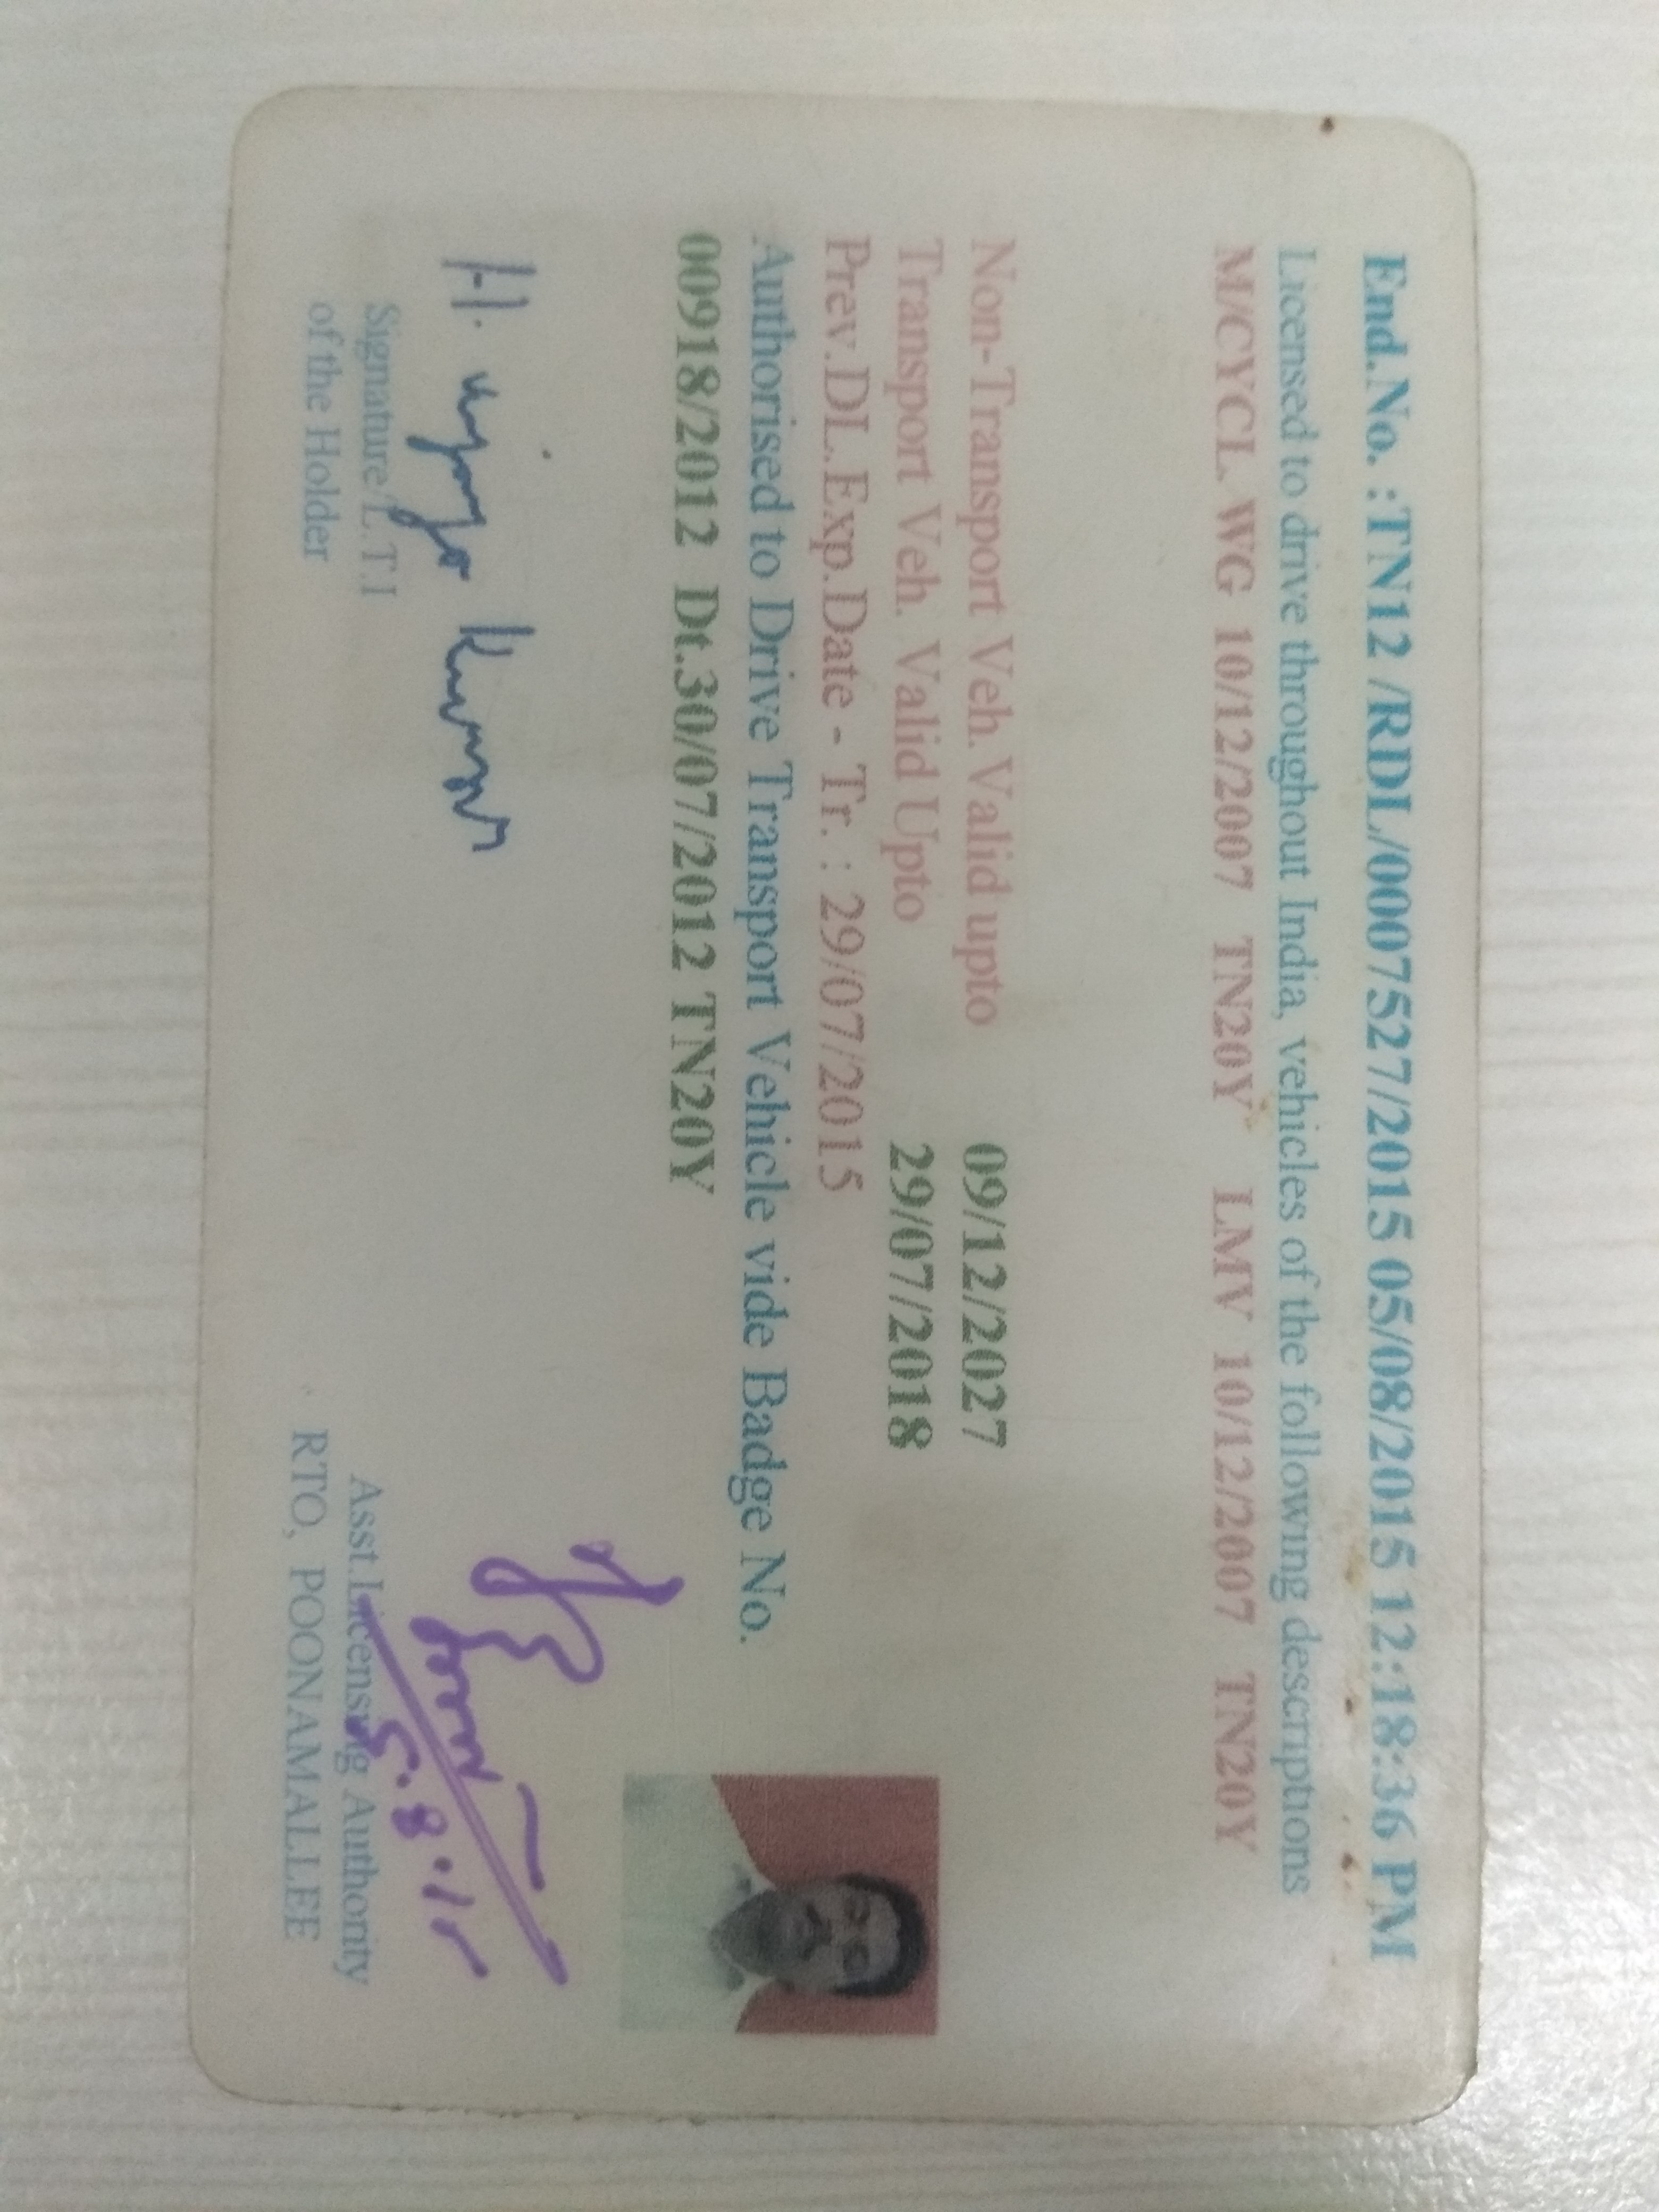 End.No. : TN12 /RDL/0007527/2015 05/08/2015 12:18:36 PM
Licensed to drive throughout India, vehicles of the following descriptions
M/CYCL. WG 10/12/2007 TN20Y LMV 10/12/2007 TN20Y
Non-Transport Veh. Valid upto 09/12/2027
Transport Veh. Valid Upto 29/07/2018
Prev.DL.Exp.Date - Tr. : 29/07/2015
Authorised to Drive Transport Vehicle vide Badge No.
00918/2012 Dt.30/07/2012 TN20Y
H. Kumar
5.8.15
Signature/L.T.I
of the Holder
Asst.Licensing Authority
RTO, POONAMALLEE